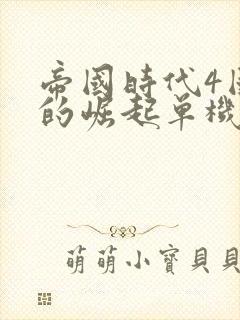 帝國時代4
的崛起单機
萌萌小寶貝貝